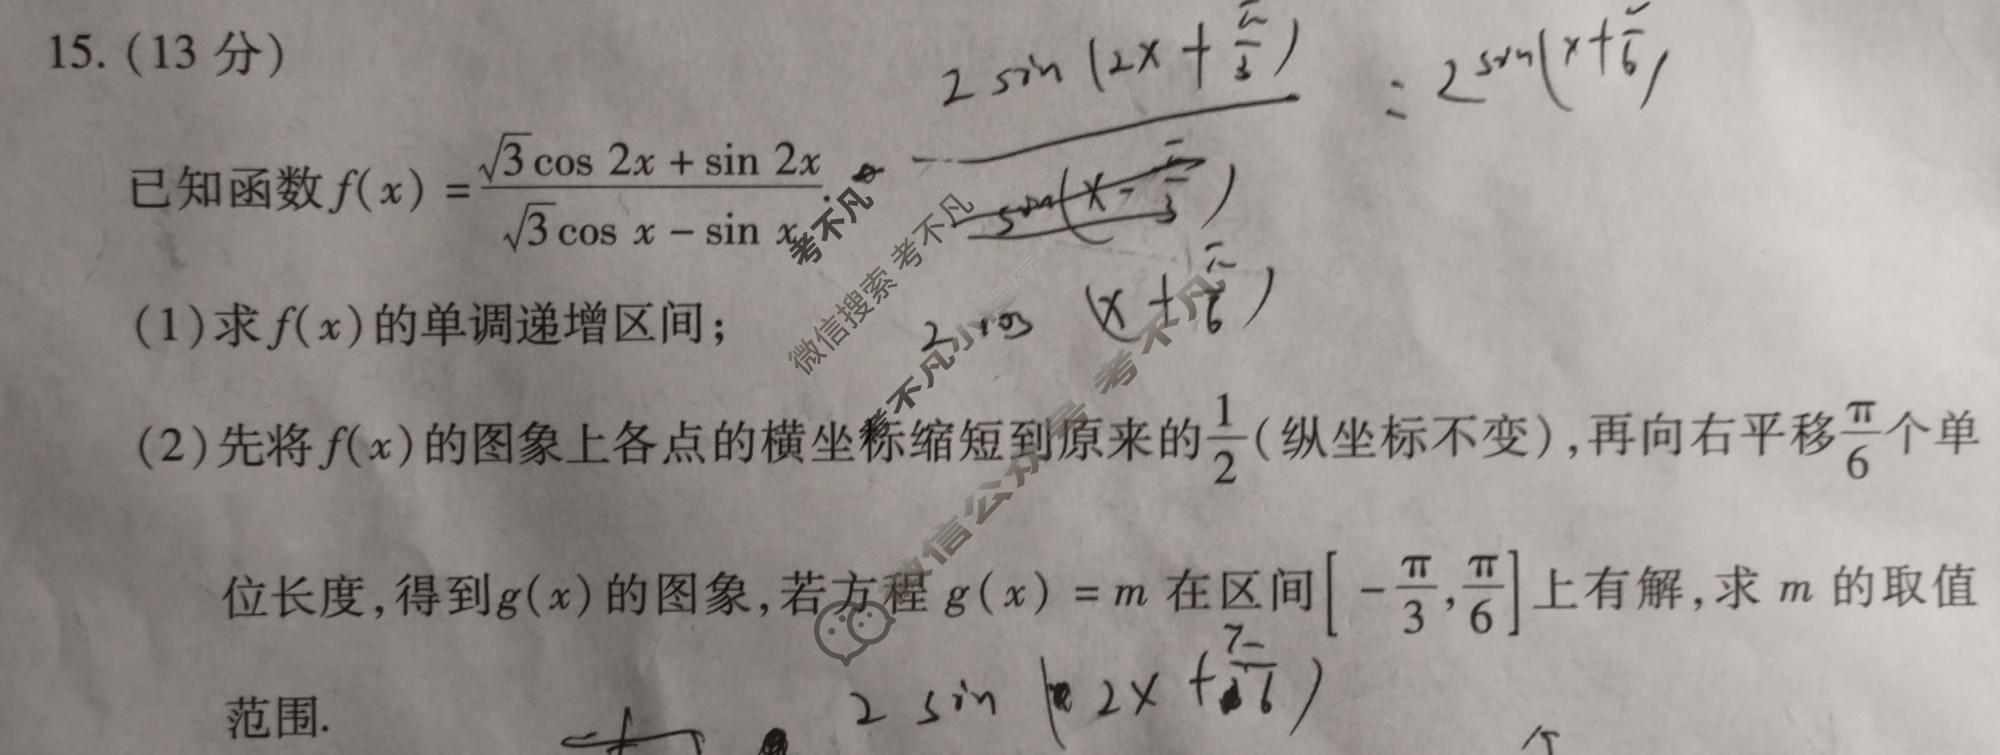 15. (13 分)
2 sin (2x + π/3) = 2 sin(x + π/6)
已知函数 f(x) = (√3 cos 2x + sin 2x)/(√3 cos x − sin x).
sin(x − π/3)
2 cos (x + π/6)
(1) 求 f(x) 的单调递增区间;
(2) 先将 f(x) 的图象上各点的横坐标缩短到原来的 1/2 (纵坐标不变), 再向右平移 π/6 个单
位长度, 得到 g(x) 的图象, 若方程 g(x) = m 在区间 [−π/3, π/6] 上有解, 求 m 的取值
范围.
考不凡
微信搜索 考不凡
考不凡小程序
微信公众号 考不凡